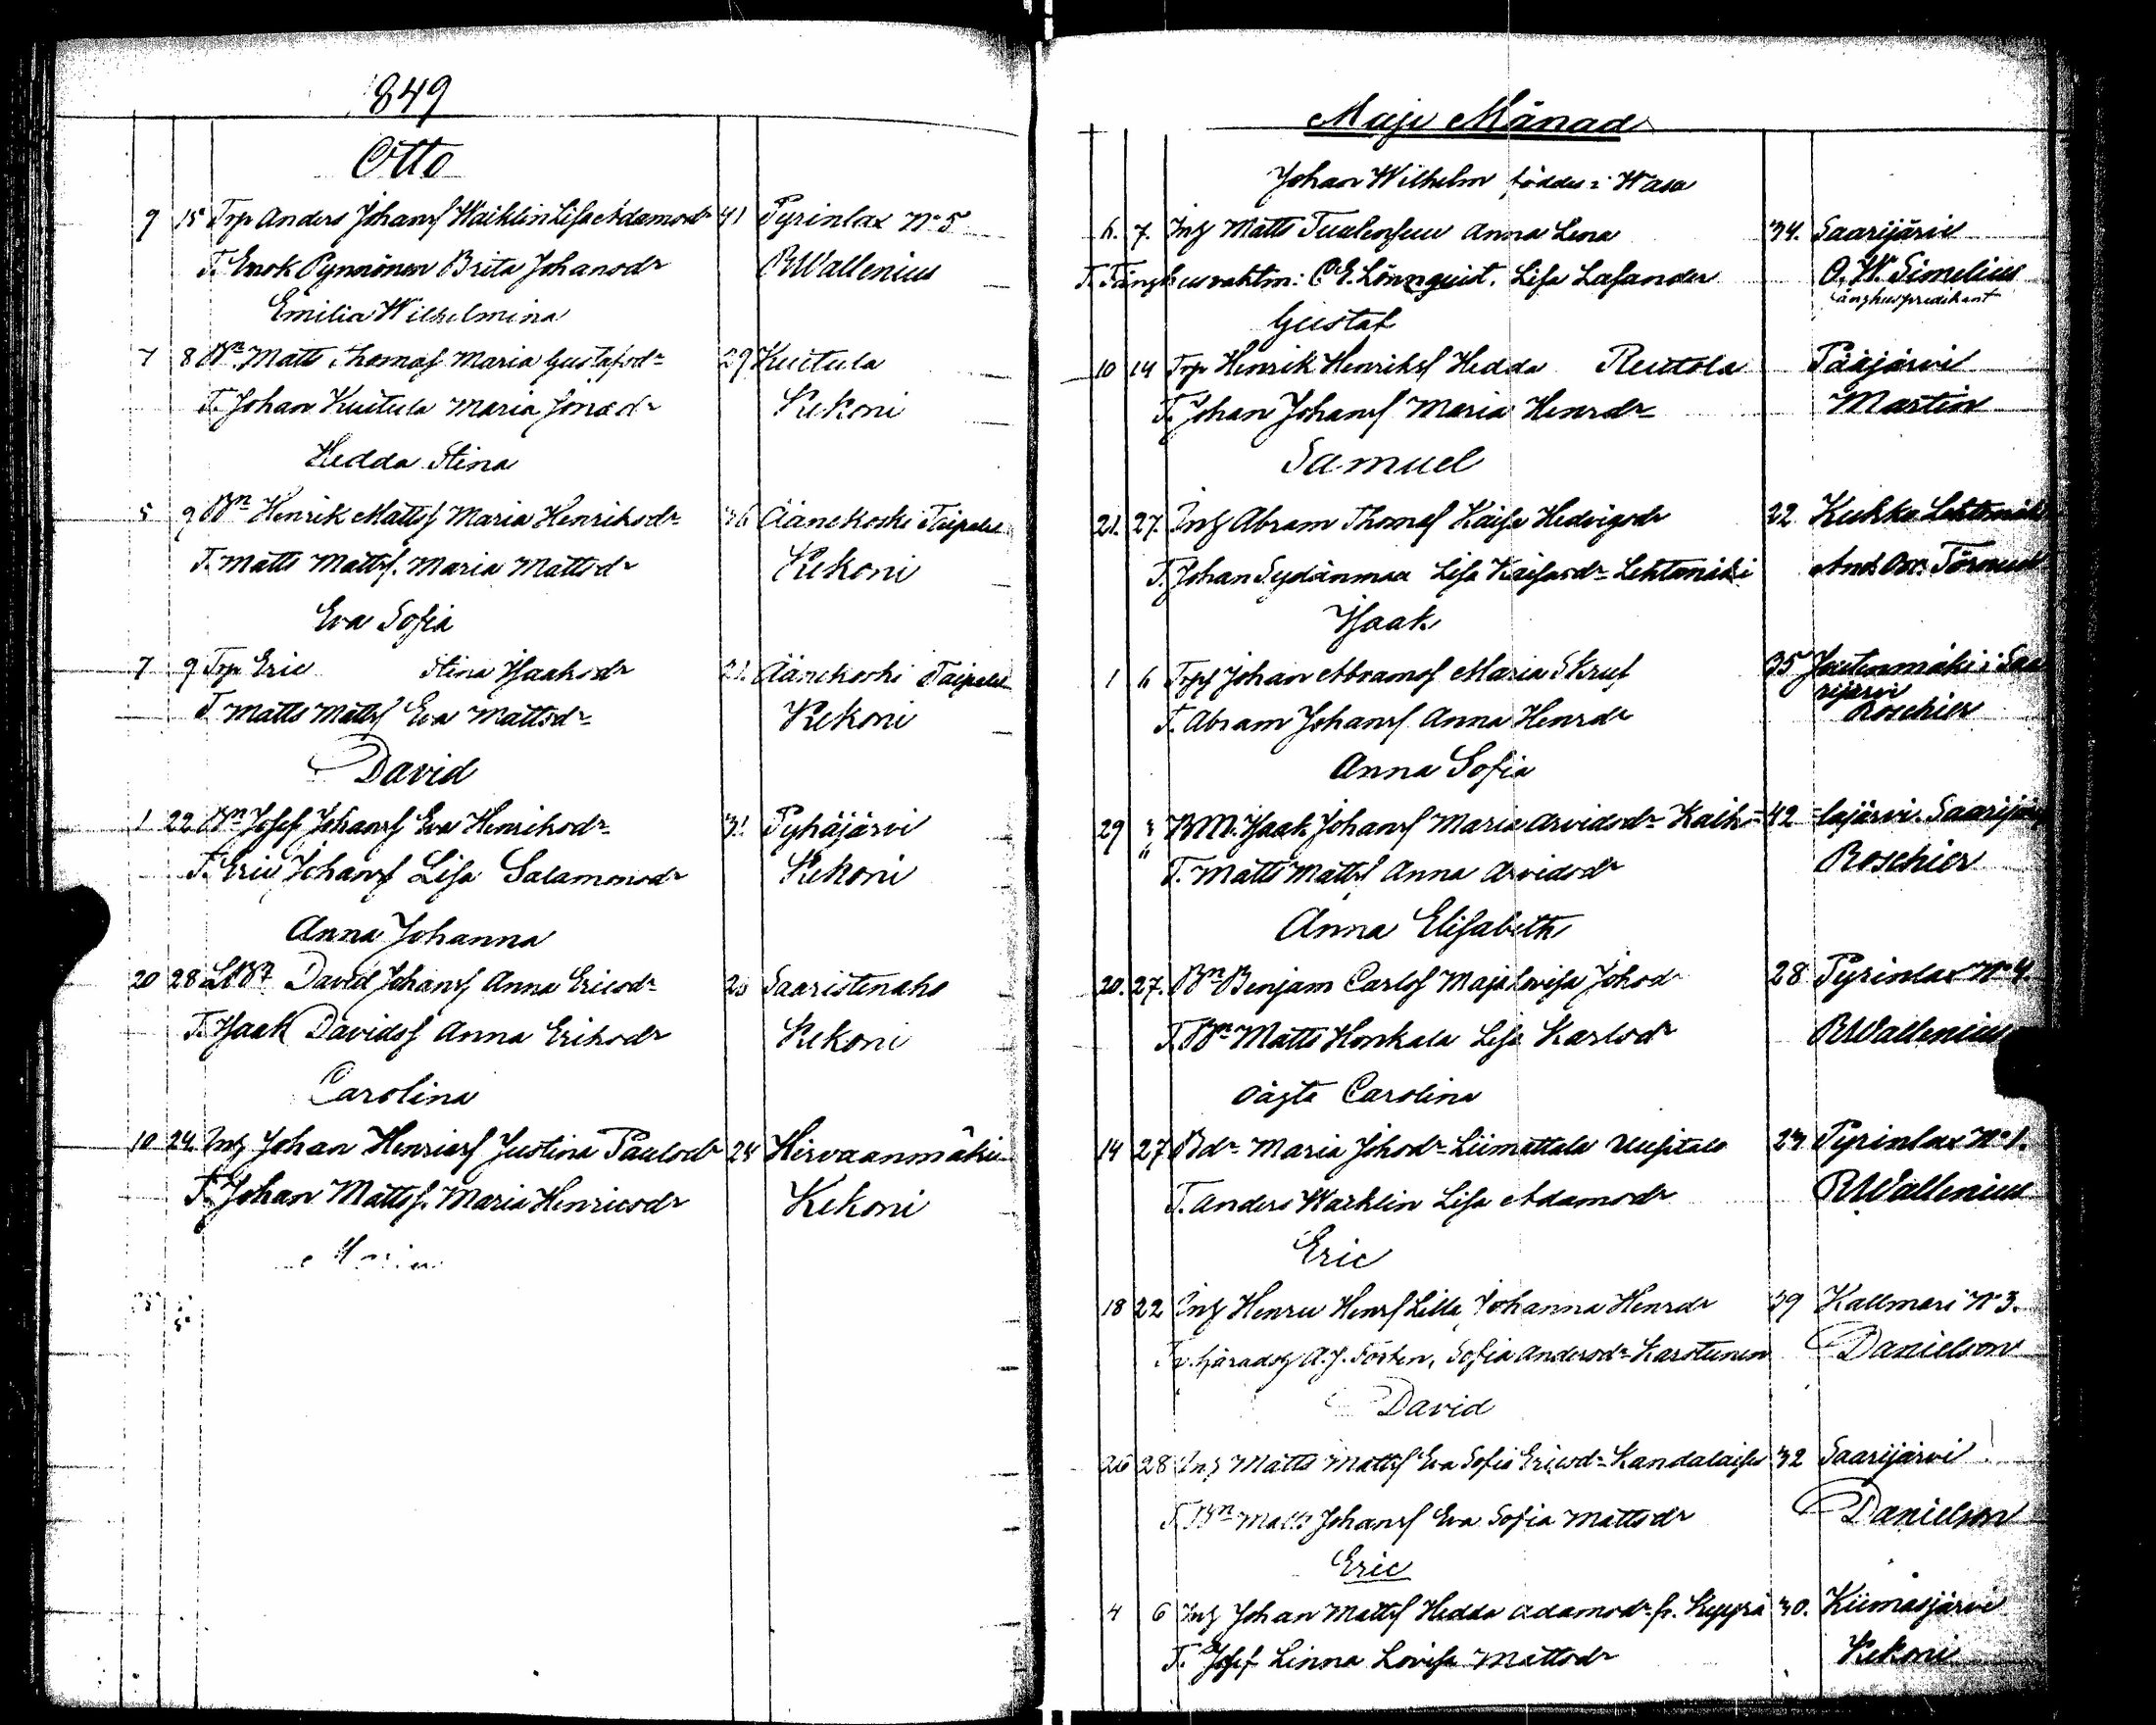 1849
Otto
9 15 Trp Anders Johansf Waiklin Lisa Adamsdr 41 Pyrinlax No 5
T. Enok Pynnönen Brita Johansdr RWallenius
Emilia Wilhelmina
7 8 Bn Matts Thomasf Maria Gustafsdr 29 Kuitula
T. Johan Kuitula Maria Jonaedr Kekoni
Hedda Stina
5 9 Bn Henrik Mattsf Maria Henriksdr 36 Äänekoski Taipale
T. Matts Mattsf. Maria Mattsdr Kekoni
Eva Sofia
7 9 Trp Eric Stina Isaaksdr 21. Äänekoski Taipale
T Matts Mattsf Eva Mattsdr Kekoni
David
1 22 Bn Josef Johansf Eva Henriksdr 31 Pyhäjärvi
T. Eric Johansf Lisa Salamonsdr Kekoni
Anna Johanna
20 28 David Johansf Anna Ericsdr Saaristenaho
T. Isaak Davidsf Anna Eriksdr Kekoni
Carolina
10 24 Inh Johan Henricsf Justina Paulsdr 24 Hirvaanmäki
T. Johan Mattsf. Maria Henricsdr Kekoni
Maria
Maji Månad
Johan Wilhelm föddes i Wasa
6. 7. Inh Matts Anna Lena 34. Saarijärvi
T. C E. Lönnquist. Lisa Lasander O. W. Simelius
Länghuspredikant
Gustaf
10 14 Trp Henrik Henriksf Hedda Ruutola Pääjärvi
T. Johan Johansf Maria Henrdr Martin
Samuel
21. 27. Inh Abram Thomasf Kaisa Hedvigsdr 22 Kukko Lehtomäki
T. Johan Sydänmaa Lisa Kaisasdr Lehtomäki
Isaak
1 6 Trpf Johan Abramsf Maria Skruf 35 Jautenmäki i Saa
rijärvi
T. Abram Johansf Anna Henrdr Roschier
Anna Sofia
29 " BM. Isaak Johansf Maria Arvidsdr Kalk= 42 =lajärvi Saarijärvi
T. Matts Mattsf Anna Arvidsdr Roschier
Anna Elisabeth
20. 27. Bn Benjam Carlsf Maja Lovisa Johsd 28 Pyrinlax No 4.
T. Bn Matts Honkala Lisa Karlsdr RWallenius
oägta Carolina
14 27 Bdr Maria Johsdr Liimattala Uusitalo 23 Pyrinlax No 1.
T. Anders Waeklin Lisa Adamsdr RWallenius
Eric
18 22 Inh Henric Henrsf Lilla, Johanna Henrdr 39 Kallmari No 3.
A. J. Forsten, Sofia Andersdr Karstunen Danielson
David
26 28 Inh Matts Mattsf Eva Sofia Ericsdr Kandalaise 32 Saarijärvi
T. Bn Matts Johansf Eva Sofia Mattsdr Danielson
Eric
4 6 Inh Johan Mattsf Hedda Adamsdr fr. Leppä 30. Kiimasjärvi
T. Josef Linna Lovisa Mattsdr Kekoni